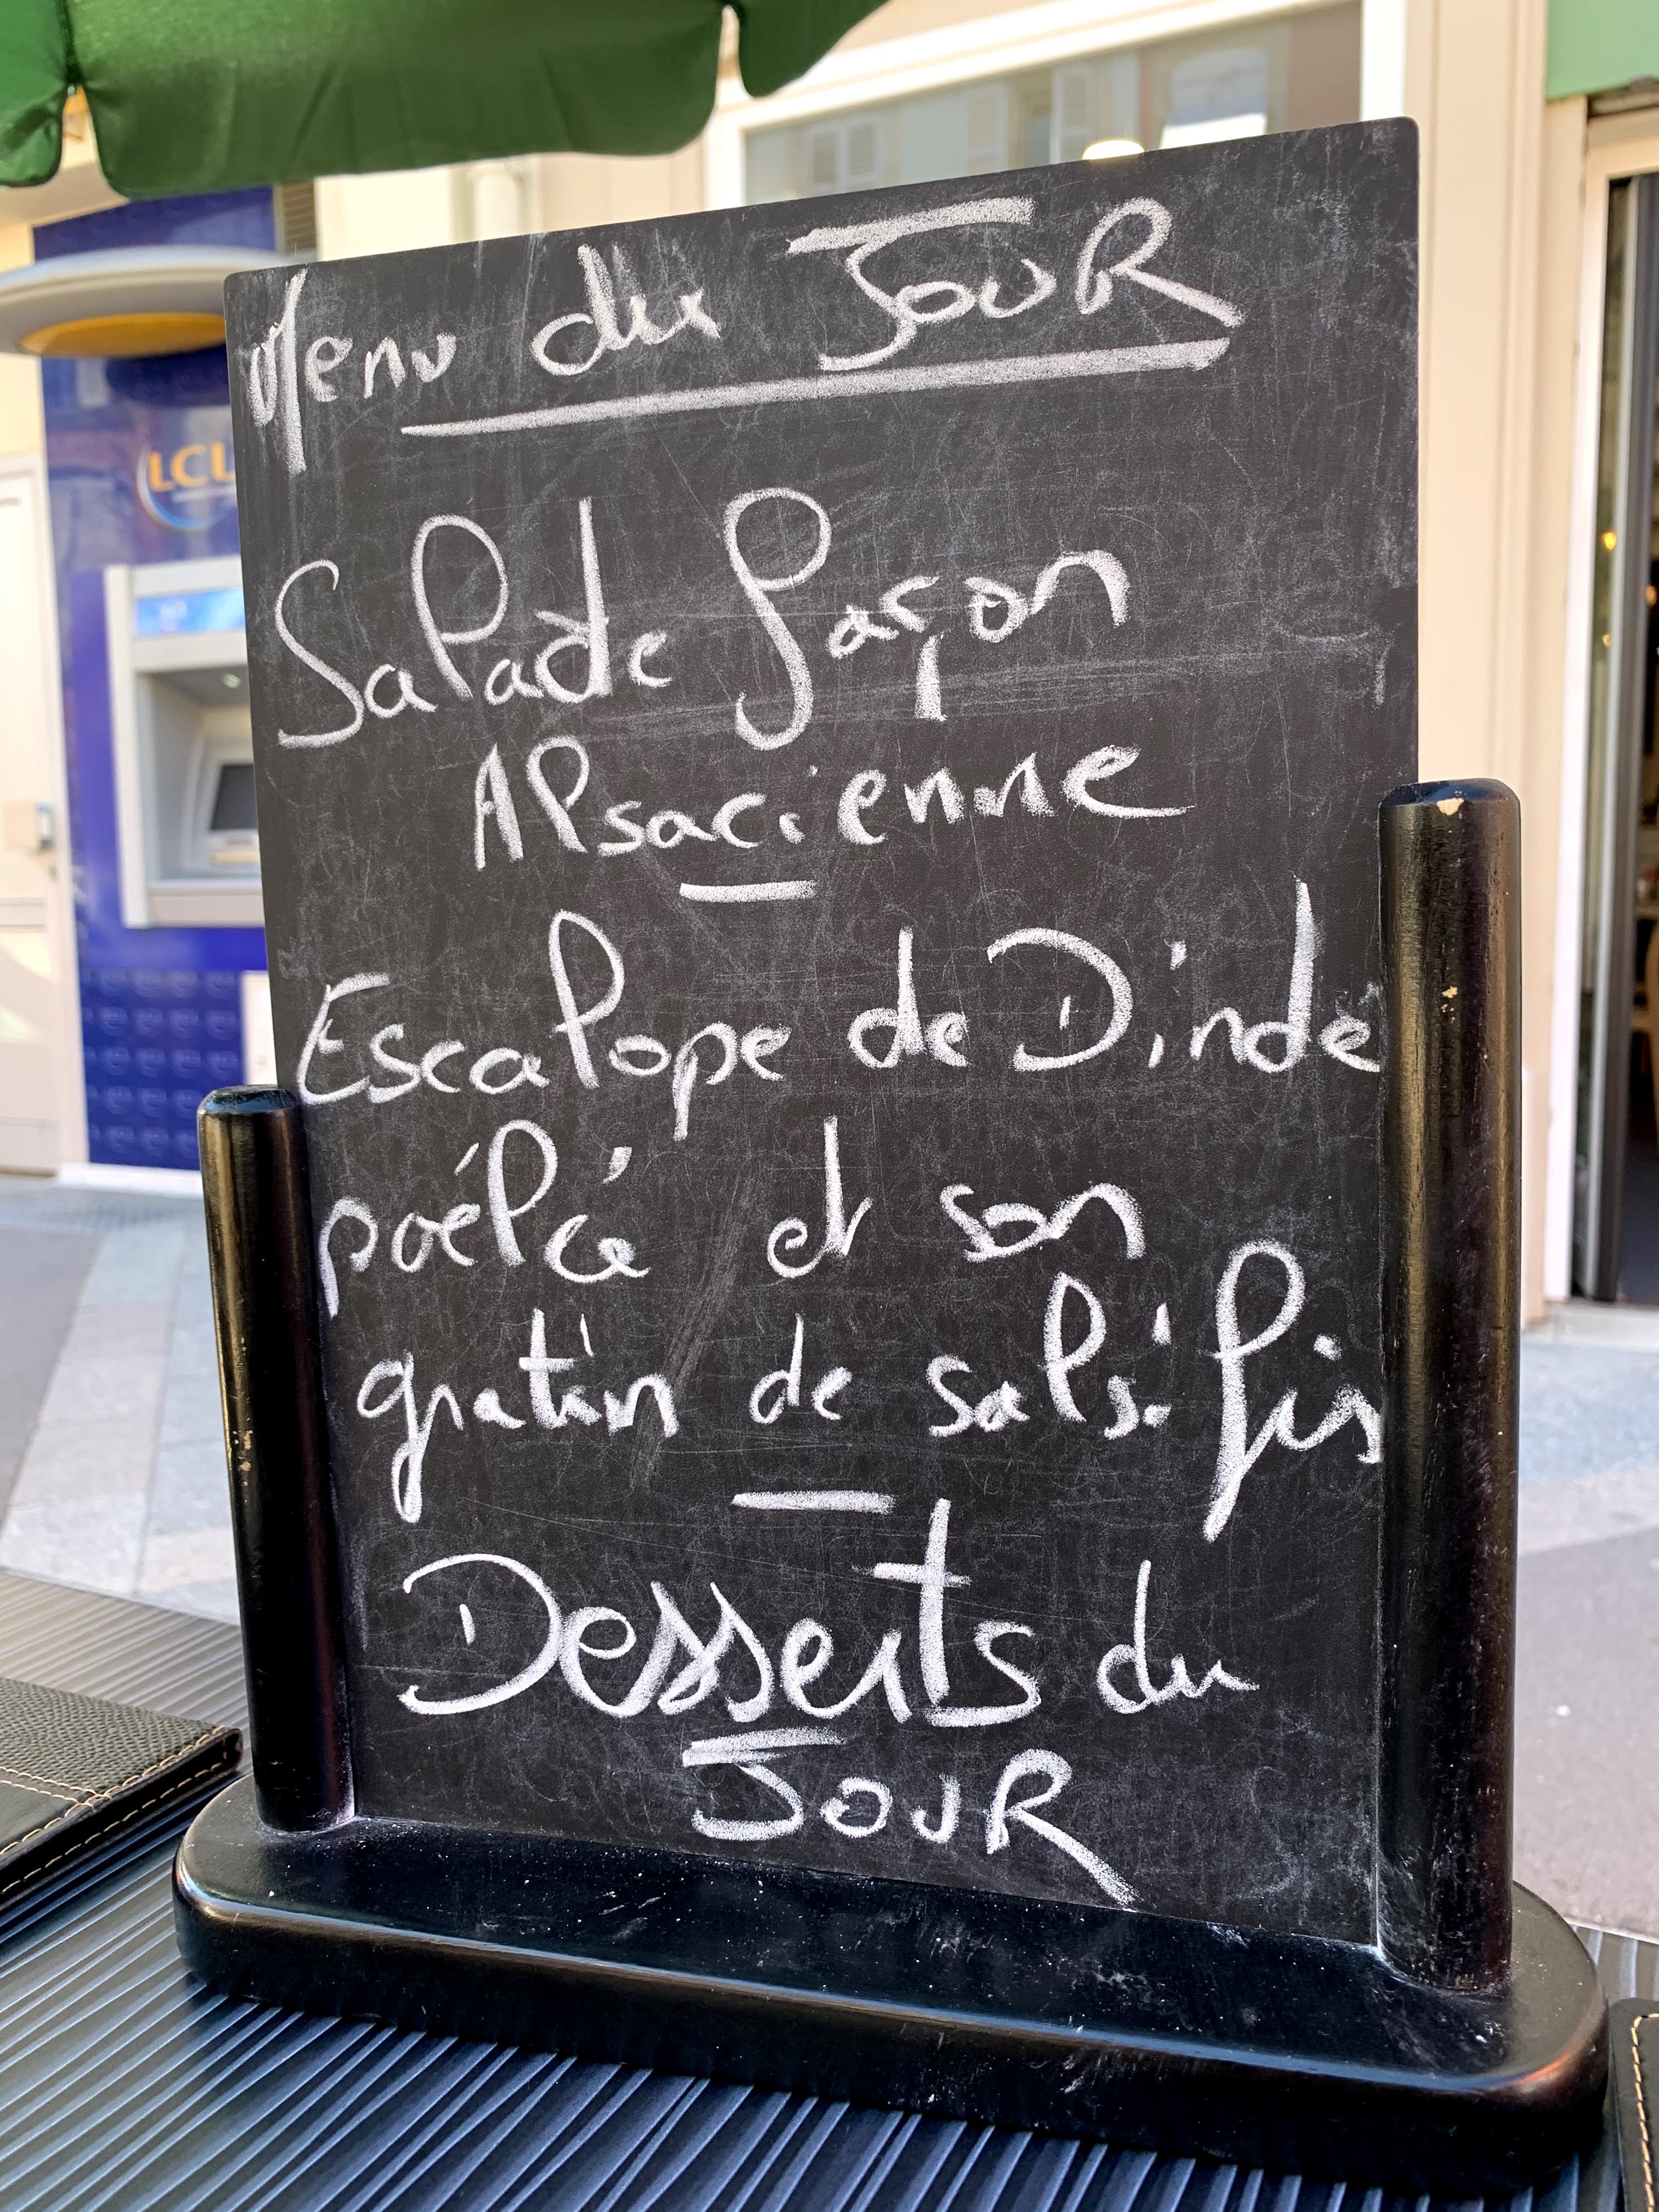 Menu du JOUR
LCL
Salade façon
Alsacienne
Escalope de Dinde
poélée et son
gratin de salsifis
Desserts du
JOUR